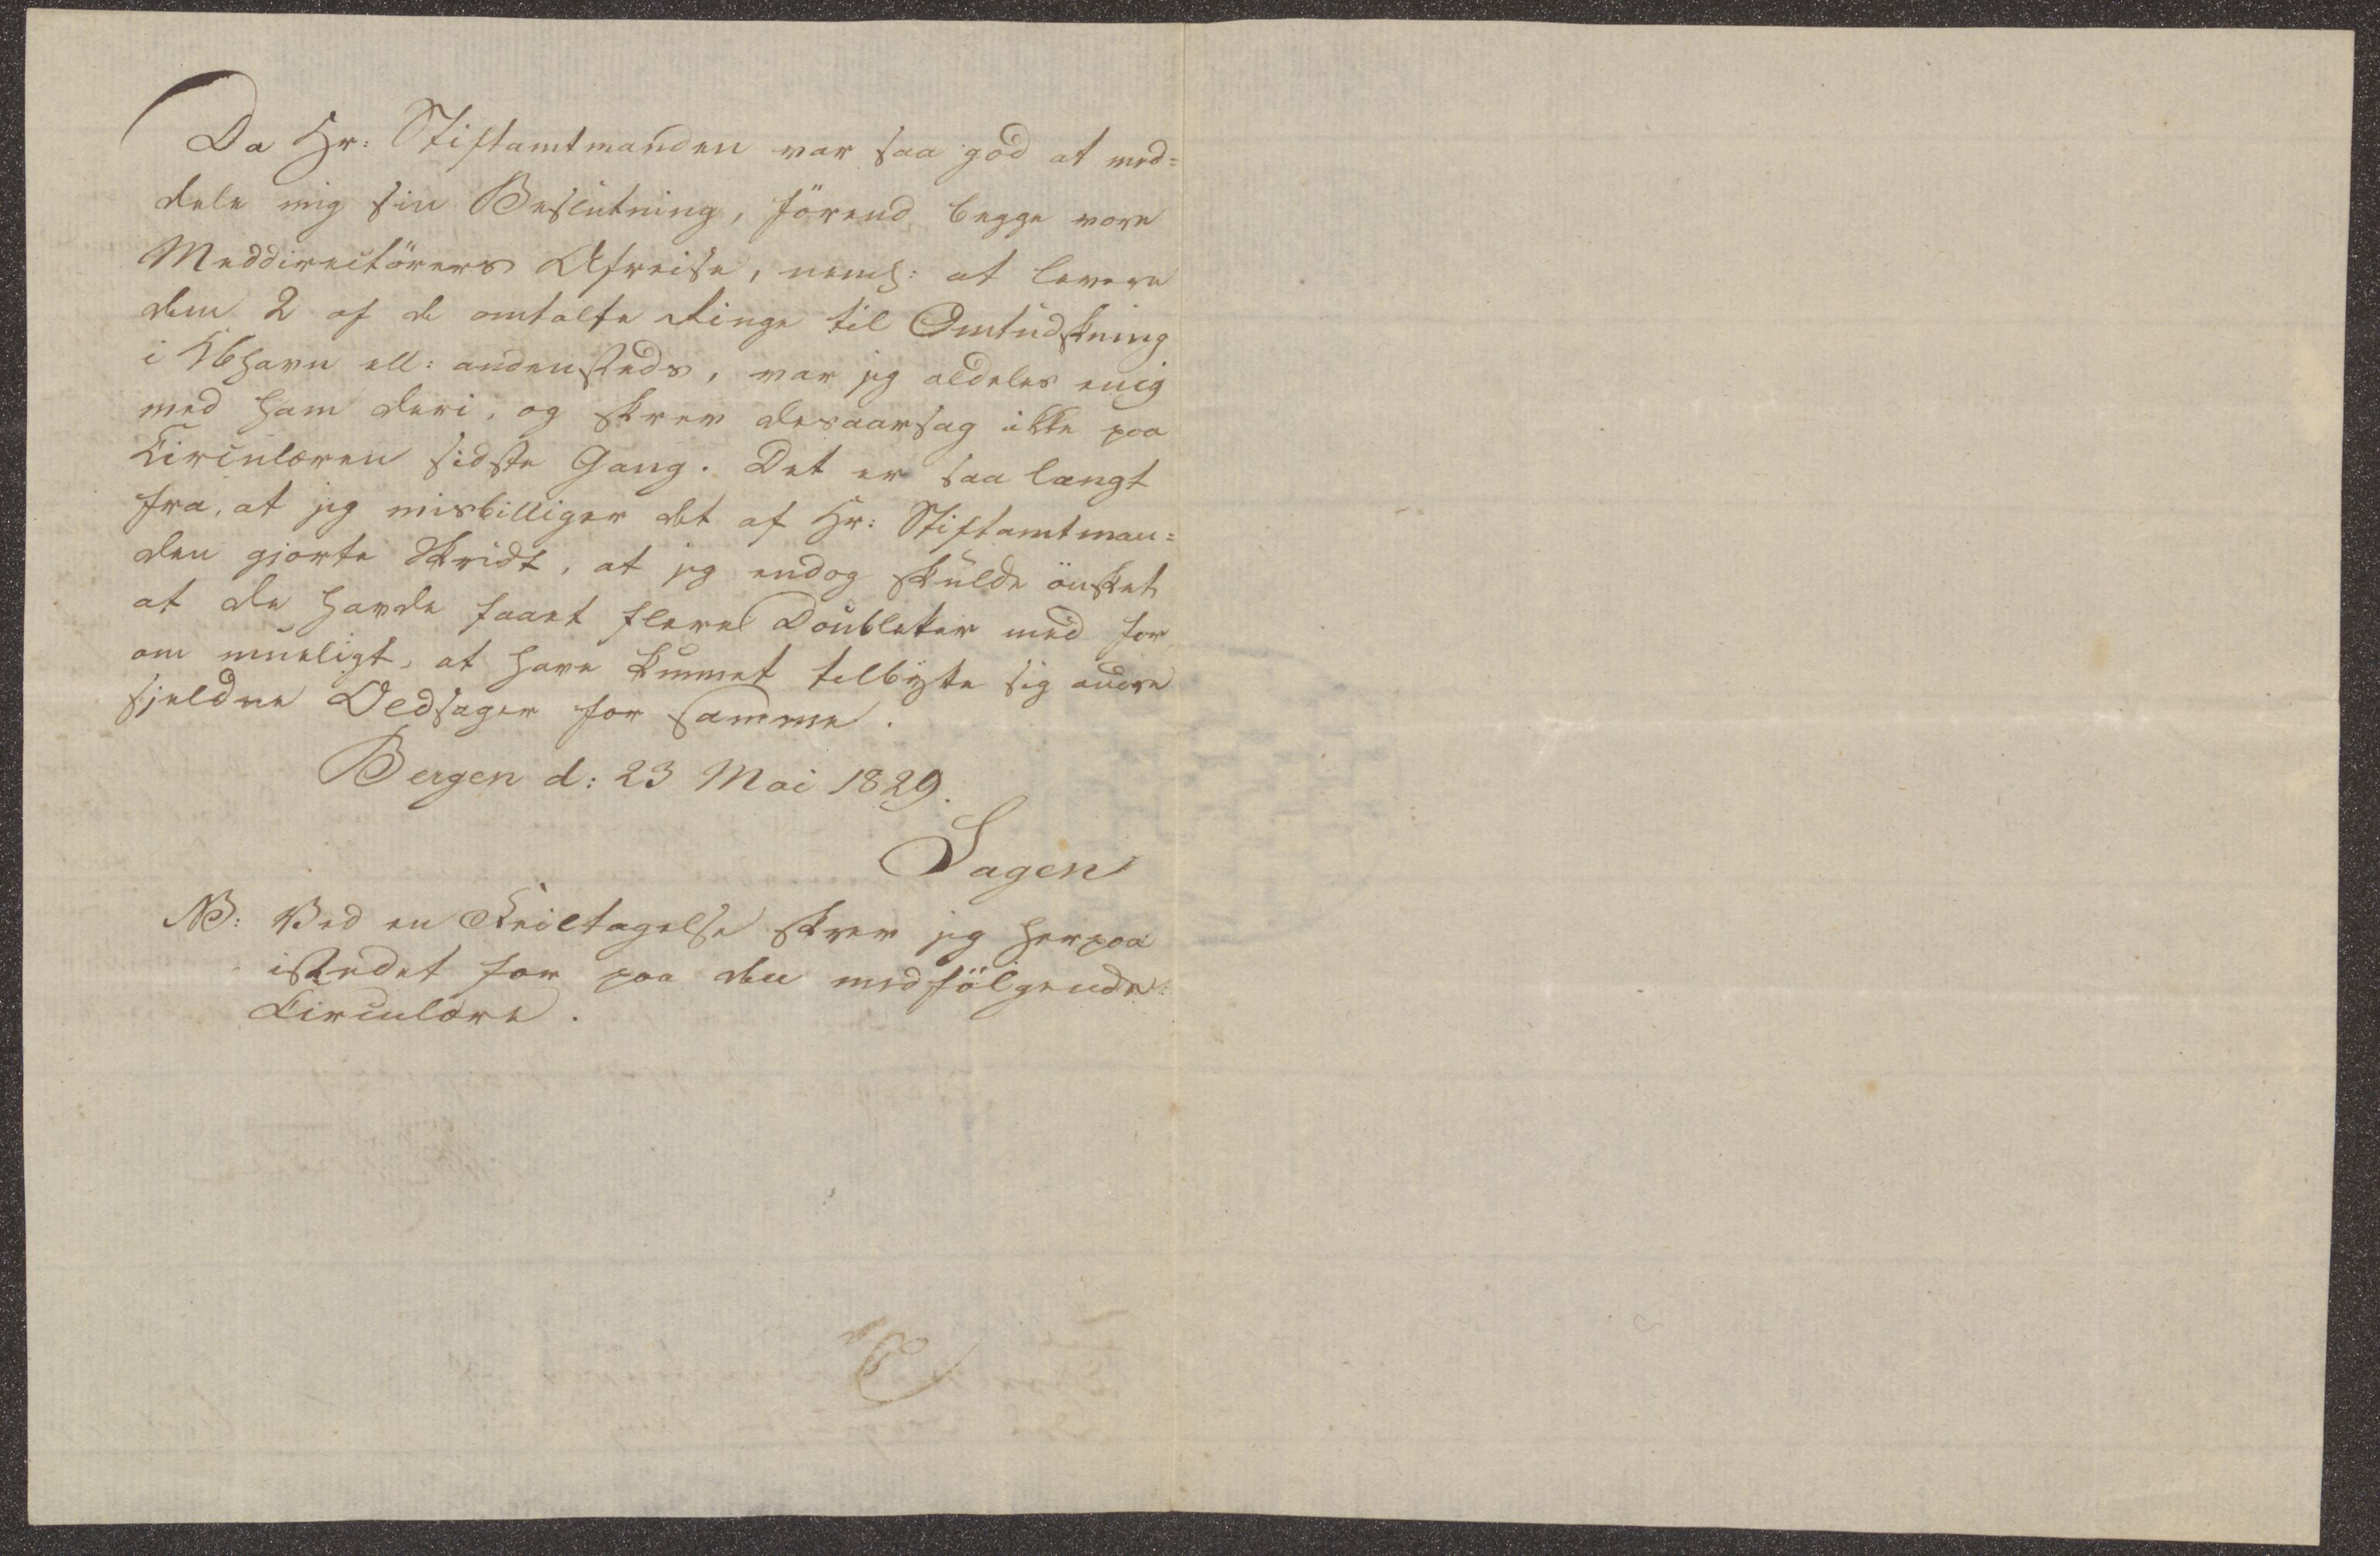 Da Hr: Stiftamtmanden var saa god at med=
dele mig sin Beslutning, förend begge vore
Meddirectörers Afreise, neml: at levere
dem 2 af de omtalte Ringe til Omtudskning
i Kbhavn ell: andensteds, var jeg aldeles enig
med ham deri, og skrev desaarsag ikke paa
Circulæren sidste Gang. Det er saa langt
fra, at jeg misbilliger det af Hr: Stiftamtman=
den gjorte Skridt, at jeg endog skulde önsket
at de havde faaet flere Doubleter med for,
om mueligt, at have kunnet tilbytte sig andre
sjeldne Oldsager for samme.
Bergen d: 23 Mai 1829.
Sagen
NB: Ved en Feiltagelse skrev jeg herpaa
istedet for paa den medfölgende
Circulære.